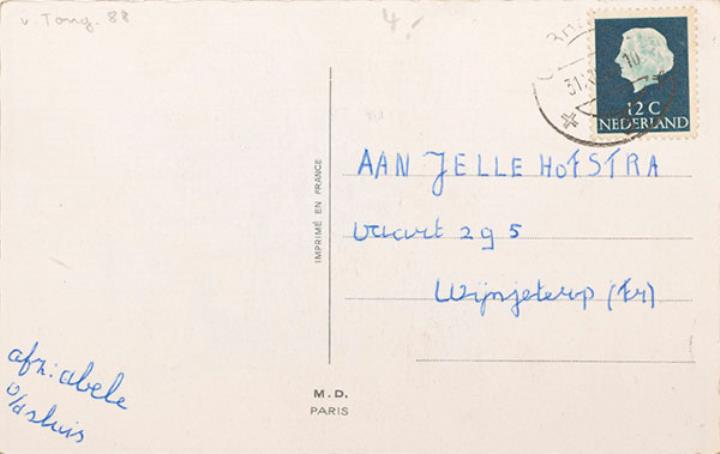 v. Tong. 88
4.-
31
10
12 C
NEDERLAND
IMPRIMÉ EN FRANCE
AAN JELLE HOFSTRA
vaart 295
Wijnjeterp (Fr)
afz: abele
v/d sluis
M.D.
PARIS